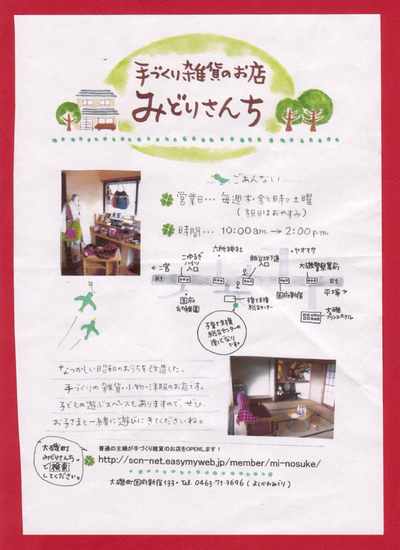 手づくり雑貨のお店
みどりさんち
ごあんない
営業日… 毎週 木・金と時々土曜
(祝日はおやすみ)
時間… 10:00 a.m. → 2:00 p.m.
六所神社
ヤオマサ
こゆるぎ
ハイツ
入口
大磯警察署前
←二宮
R1
R1
平塚→
国府
幼稚園
子育て支援
総合センター
国府新宿
大磯
プリンスホテル
子育て支援
総合センターの
南どなり
です。
なつかしい昭和のおうちを改造した、
手づくりの雑貨・小物・洋服のお店です。
子どもの遊ぶスペースもありますので、ぜひ、
お子さまと一緒に遊びにきてくださいね。
普通の主婦が手づくり雑貨のお店をOPENします!
http://scn-net.easymyweb.jp/member/mi-nosuke/
大磯町
みどりさんち
で検索
してください。
大磯町国府新宿133・Tel 0463-71-3696 (よしかわみどり)